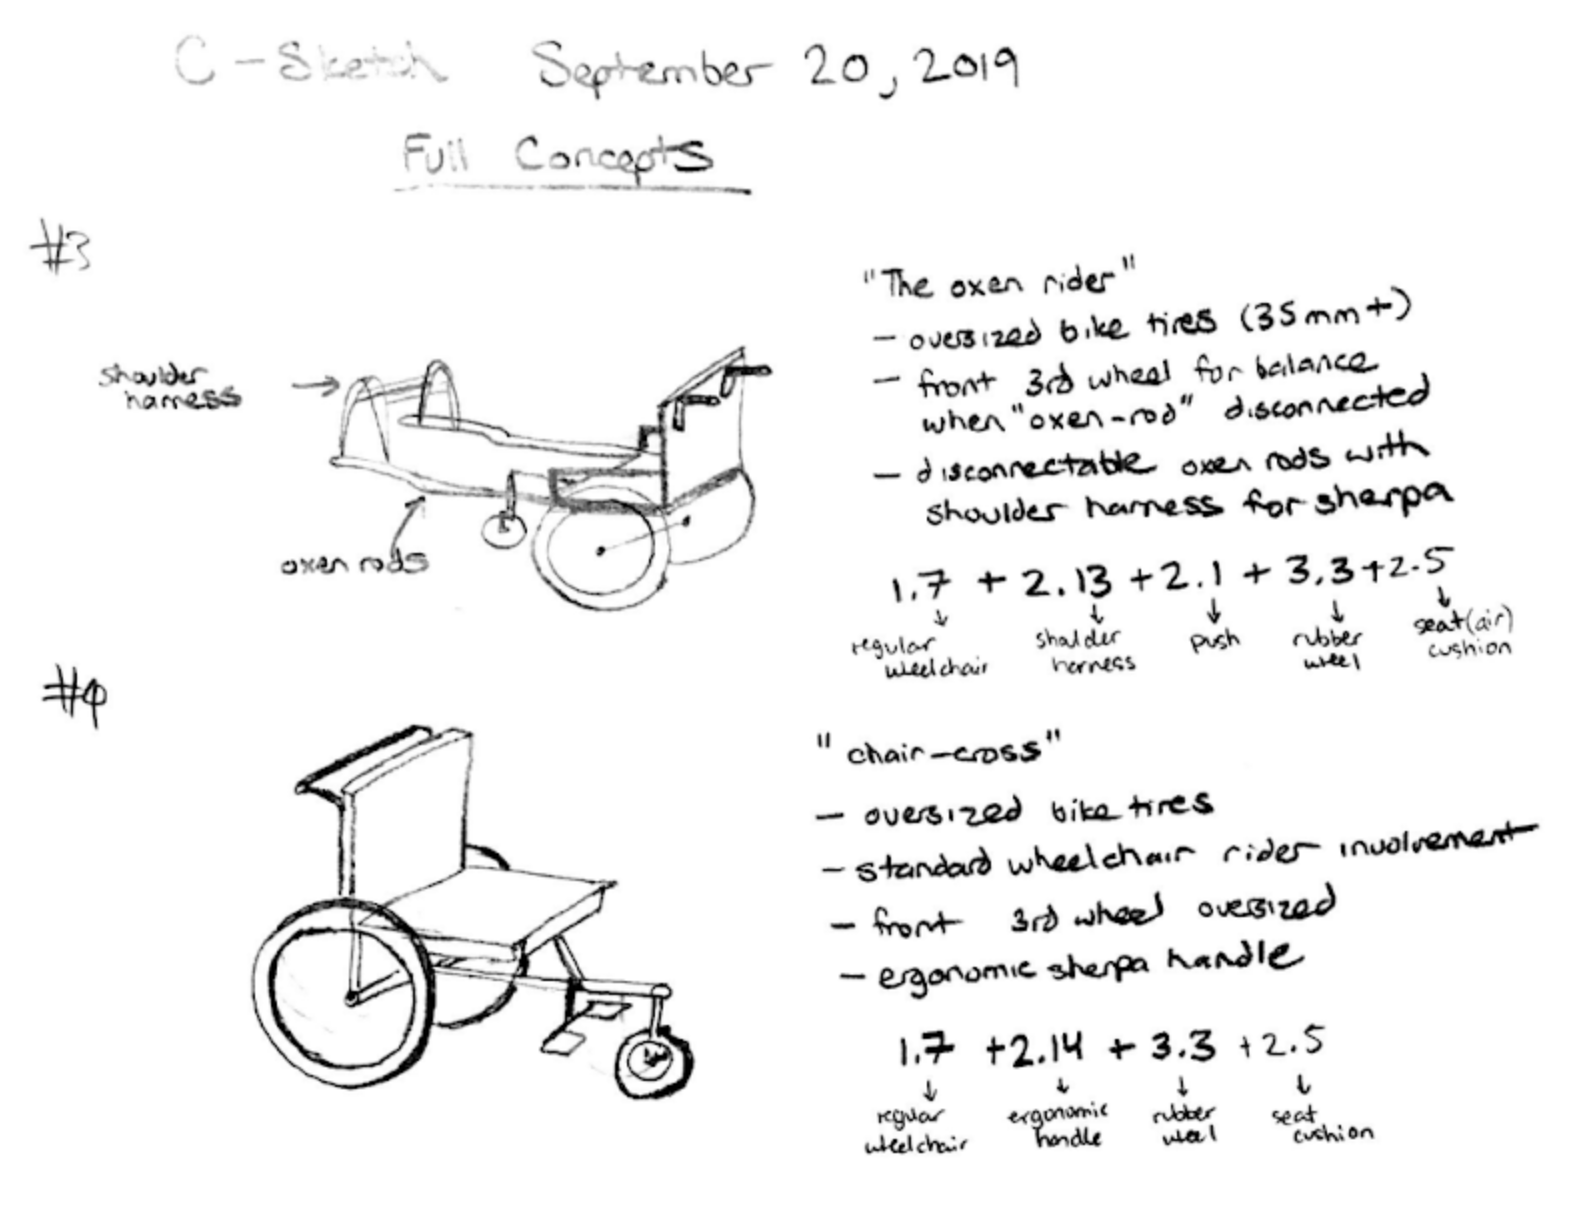 C-Sketch September 20, 2019
Full Concepts
#3
shoulder
harness
oxen rods
"The oxen rider"
- oversized bike tires (35mm+)
- front 3rd wheel for balance
when "oxen-rod" disconnected
- disconnectable oxen rods with
shoulder harness for sherpa
1.7 + 2.13 + 2.1 + 3.3 + 2.5
regular
wheelchair
shoulder
harness
push
rubber
wheel
seat (air)
cushion
#4
"chair-cross"
- oversized bike tires
- standard wheelchair rider involvement
- front 3rd wheel oversized
- ergonomic sherpa handle
1.7 + 2.14 + 3.3 + 2.5
regular
wheelchair
ergonomic
handle
rubber
wheel
seat
cushion